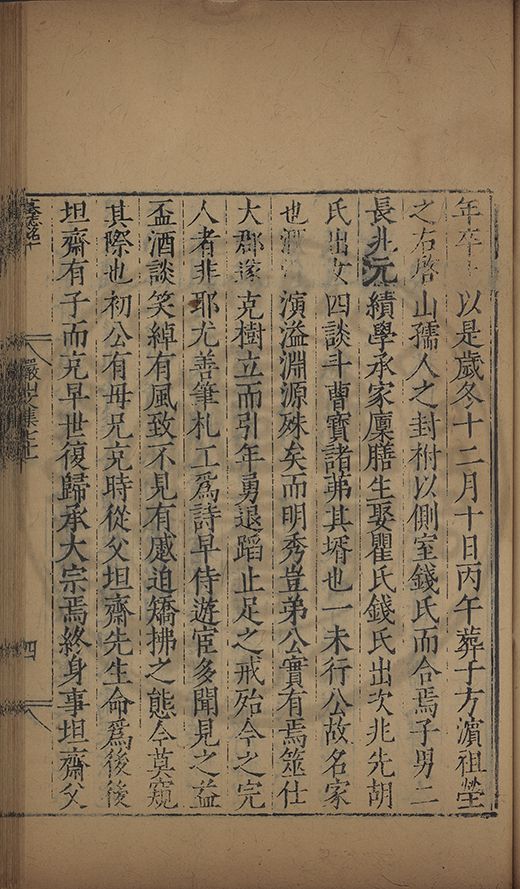 年卒以是歲冬十二月十日丙午葬于方濱祖塋
之右啓山孺人之封祔以側室錢氏而合焉子男二
長兆元績學承家廩膳生娶瞿氏錢氏出次兆先胡
氏出女四談斗曹寶諸苐其壻也一未行公故名家
也演溢淵源殊矣而明秀豈弟公實有焉筮仕
大郡遂克樹立而引年勇退蹈止足之戒殆今之完
人者非耶尤善筆札工爲詩早侍遊宦多聞見之益
盃酒談笑綽有風致不見有慼迫矯拂之態今莫窺
其際也初公有毋兄充時從父坦齋先生命爲後後
坦齋有子而充早世復歸承大宗焉終身事坦齋父
四